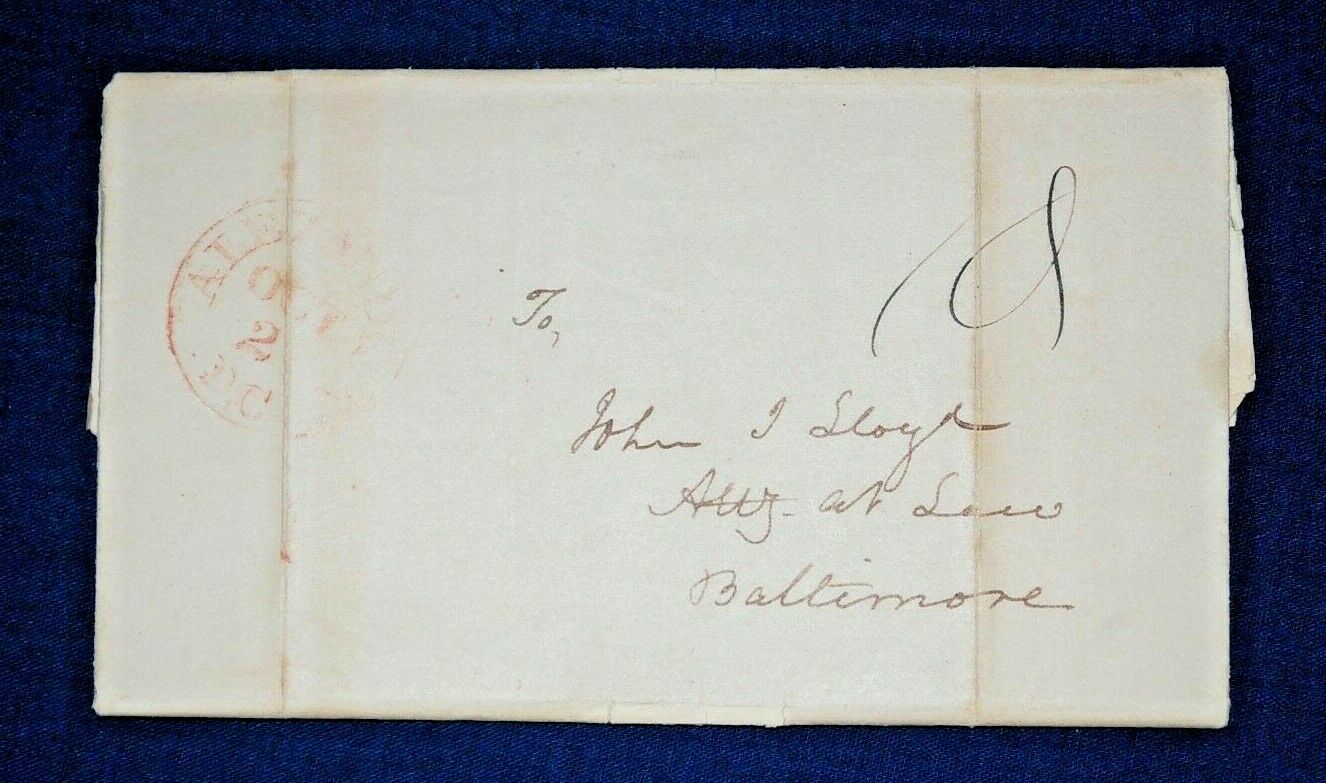 ALE
OCT
2
D.C.
To,
John J Lloyd
Atty. at Law
Baltimore